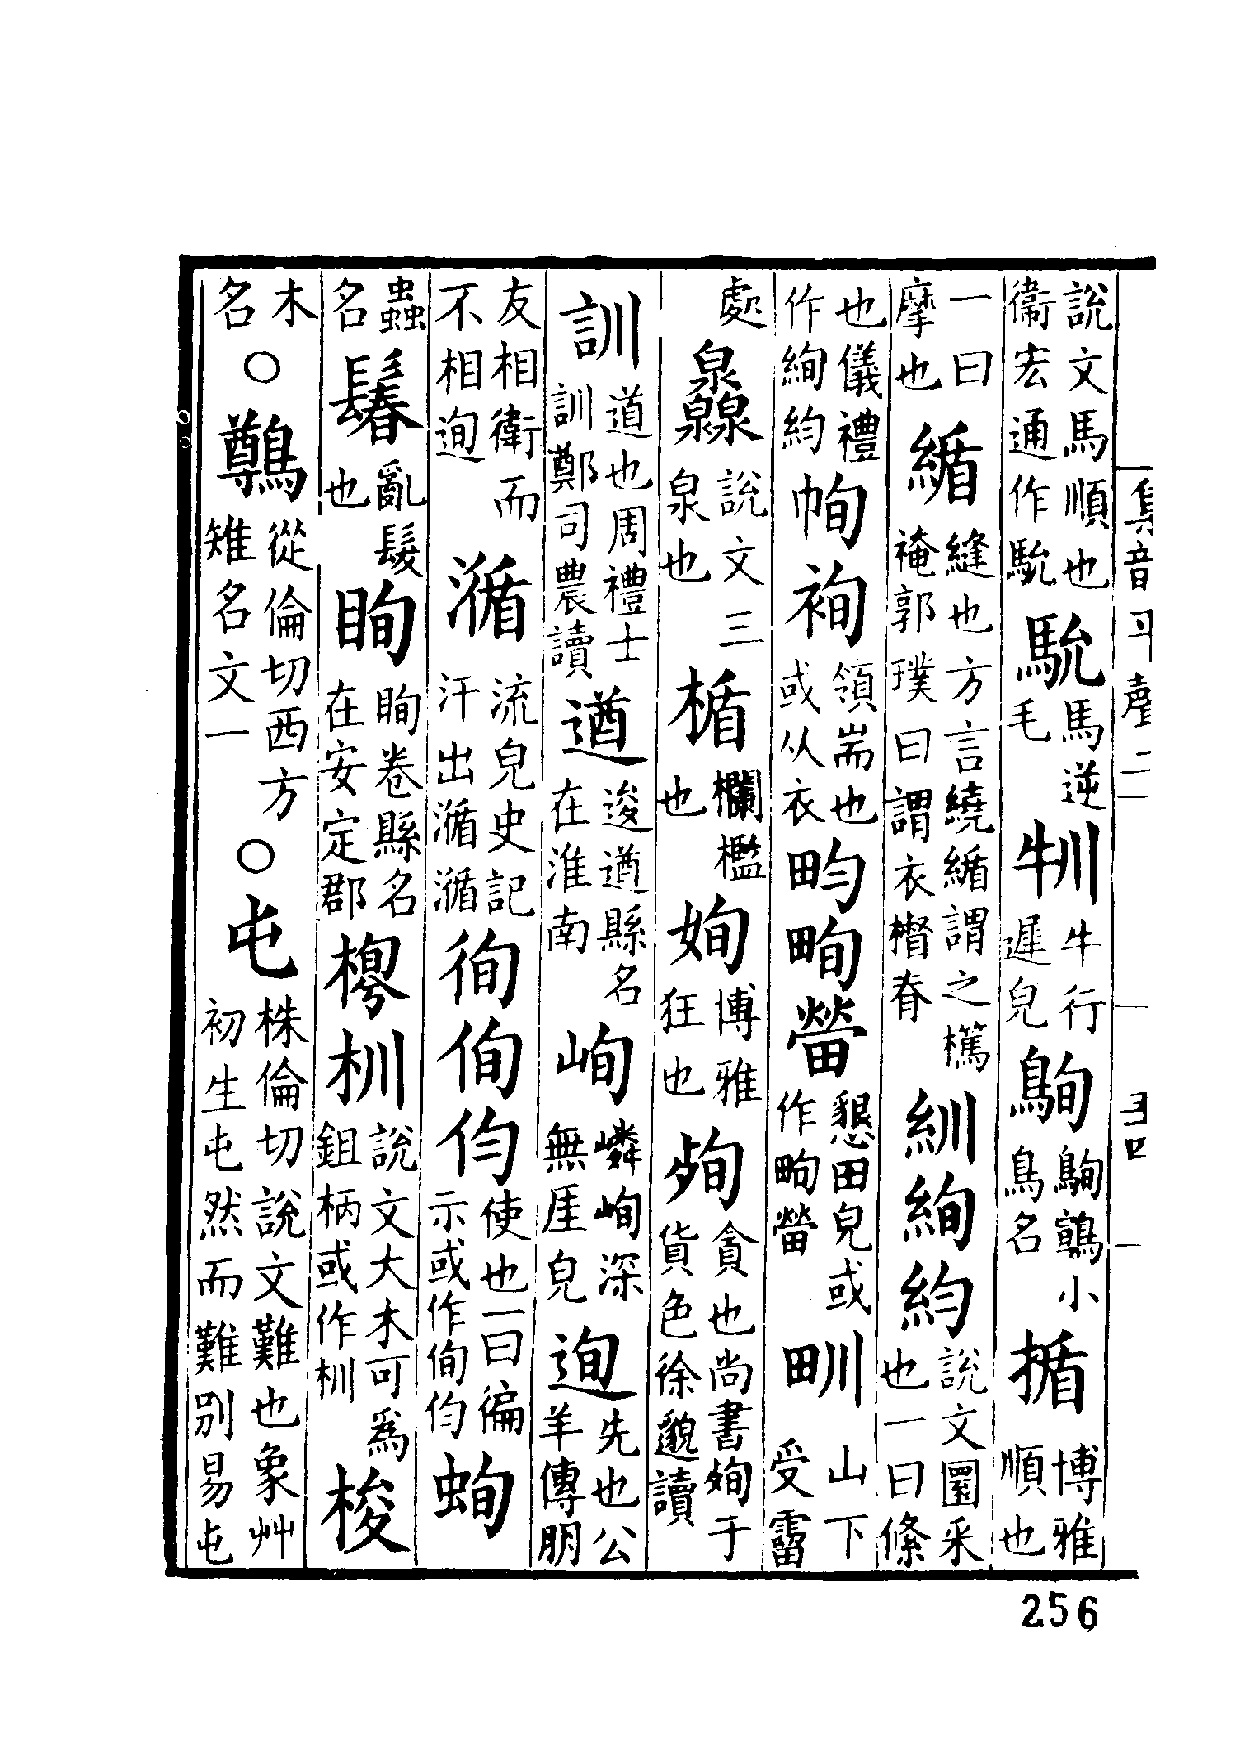 集韻平聲二 三四
說文馬順也衞宏通作馻馻馬逆毛㸪牛行遲皃䳦䳦鶉小鳥名揗博雅順也
一曰摩也𦄼縫也方言繞𦄼謂之䙡裺郭璞曰謂衣督脊紃絢約說文圜采也一曰絛
也儀禮作絢約㡒袧領耑也或从衣畇㽦𤲟墾田皃或作㽦𤲟甽山下受霤
處灥說文三泉也楯欄檻也姰博雅狂也㱬貪也尚書㱬于貨色徐邈讀
訓道也周禮士訓鄭司農讀遒逡遒縣名在淮南峋嶙峋深無厓皃迿先也公羊傳朋
友相衛而不相迿漘流皃史記汗出漘漘徇侚伨使也一曰徧示或作侚伨蚼
蟲名鬊亂髮也眴眴卷縣名在安定郡橁杊說文大木可爲鉏柄或作杊梭
木名○鷷從倫切西方雉名文一○屯株倫切說文難也象艸初生屯然而難別易屯
256